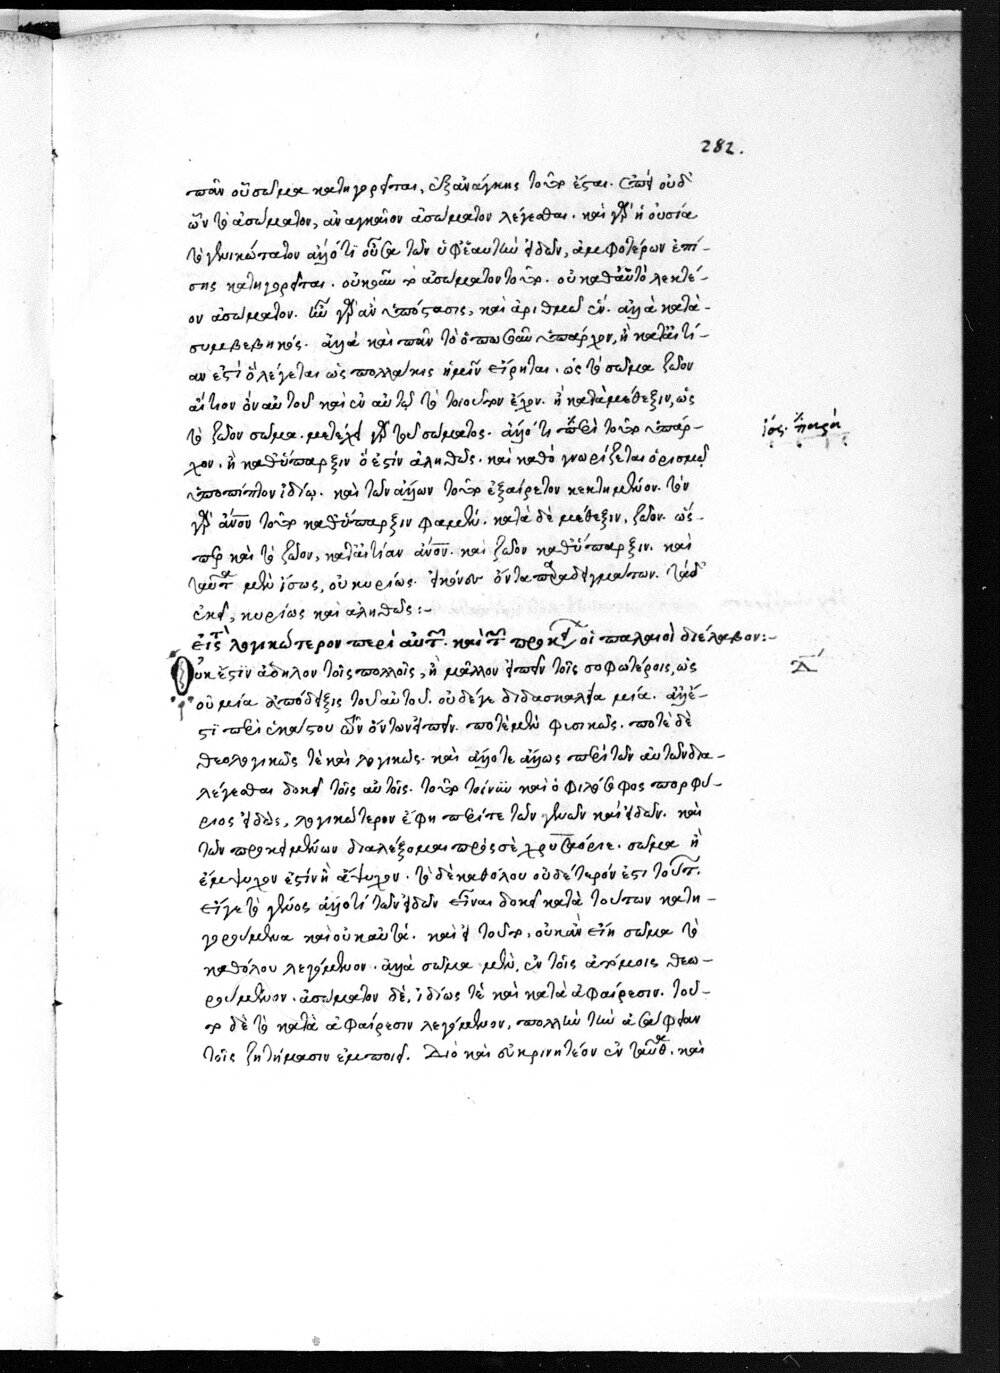 282.
πᾶν οὗ σῶμα κατηγορεῖται, ἐξ ανάγκης τοῦτο ἔσται. ἐπεὶ οὐδ᾽
ὂν τὸ ἀσώματον, ἀναγκαῖον ἀσώματον λέγεσθαι. καὶ γὰρ ἡ οὐσία
τὸ γενικώτατον ἀλλότι οὖσα τῶν ὑφ᾽ ἑαυτὴν εἰδῶν, ἀμφοτέρων ἐπί-
σης κατηγορεῖται. οὐκοῦν τὸ ἀσώματον τοῦτο. οὐ καθ᾽ αὑτὸ λεκτέ-
ον ἀσώματον. ἦν γὰρ ἂν ὑπόστασις, καὶ ἀριθμῷ ἕν. ἀλλὰ κατὰ-
συμβεβηκός. ἀλλὰ καὶ πᾶν τὸ ὁπωσοῦν ὑπάρχον, ἢ κατ᾽ αἰτί-
αν ἐστὶ ὃ λέγεται ὡς πολλάκις ἡμῖν εἴρηται. ὡς τὸ σῶμα ζῶον
αἴτιον ὂν αὐτοῦ καὶ ἐν αὐτῷ τὸ τοιοῦτον ἔχον. ἢ κατὰ μέθεξιν, ὡς
τὸ ζῶον σῶμα. μετέχει γὰρ τοῦ σώματος. ἀλλότι περὶ τοῦτο ὑπάρ-
χον. ἢ καθ᾽ ὕπαρξιν ὅ ἐστιν ἀληθῶς. καὶ καθὸ γνωρίζεται ὁρισμῷ
ὑποπίπτον ἰδίῳ. καὶ τῶν ἄλλων τοῦτο ἐξαίρετον κεκτημένον. τὸν
γὰρ ἄνον τοῦτο καθ᾽ ὕπαρξιν φαμὲν. κατὰ δὲ μέθεξιν, ζῶον. ὥς-
περ καὶ τὸ ζῶον, κατ᾽ αἰτίαν ἄνον. καὶ ζῶον καθ᾽ ὕπαρξιν. καὶ
ταῦτα μὲν ἴσως, οὐ κυρίως. εἰκόνων ὄντα παραδειγμάτων. τὰ δ᾽
ἐκεῖ, κυρίως καὶ ἀληθῶς :-
εἰς τὸ λογικώτερον περὶ αὐτῶν καὶ τῶν προκειμένων οἱ παλαιοὶ διέλαβον :-
Οὐκ ἔστιν ἄδηλον τοῖς πολλοῖς, ἢ μᾶλλον εἰπεῖν τοῖς σοφωτέροις, ὡς
οὐ μία ἀπόδειξις τοῦ αὐτοῦ. οὐδέ γε διδασκαλία μία. ἀλλ᾽ ἔ-
στι περὶ ἑκάστου τῶν ὄντων εἰπεῖν. ποτὲ μὲν φυσικῶς. ποτὲ δὲ
θεολογικῶς τὲ καὶ λογικῶς. καὶ ἄλλοτε ἄλλως περὶ τῶν αὐτῶν δια-
λέγεσθαι δοκεῖ τοῖς αὐτοῖς. τοῦτο τοίνυν καὶ ὁ φιλόσοφος πορφύ-
ριος εἰδὼς, λογικώτερον ἔφη περί τε τῶν γενῶν καὶ εἰδῶν. καὶ
τῶν προκειμένων διαλέξομαι πρὸς σὲ χρυσαόριε. σῶμα ἢ
ἔμψυχον ἐστὶν ἢ ἄψυχον. τὸ δὲ καθόλου οὐδέτερόν ἐστι τούτων.
εἴγε τὸ γένος ἀλλότι τῶν εἰδῶν εἶναι δοκεῖ κατὰ τούτων κατη-
γορούμενα καὶ οὐκ αὐτά. καὶ εἰ τοῦτο, οὐκ ἂν εἴη σῶμα τὸ
καθόλου λεγόμενον. ἀλλὰ σῶμα μὲν, ἐν τοῖς ἀτόμοις θεω-
ρούμενον. ἀσώματον δὲ, ἰδίως τὲ καὶ κατὰ ἀφαίρεσιν. τοῦ-
το δὲ τὸ κατὰ ἀφαίρεσιν λεγόμενον, πολλὴν τὴν ἀσάφειαν
τοῖς ζητήμασιν ἐμποιεῖ. Διὸ καὶ συκρινητέον ἐν ταῦθα. καὶ
ἴσ. παρὰ